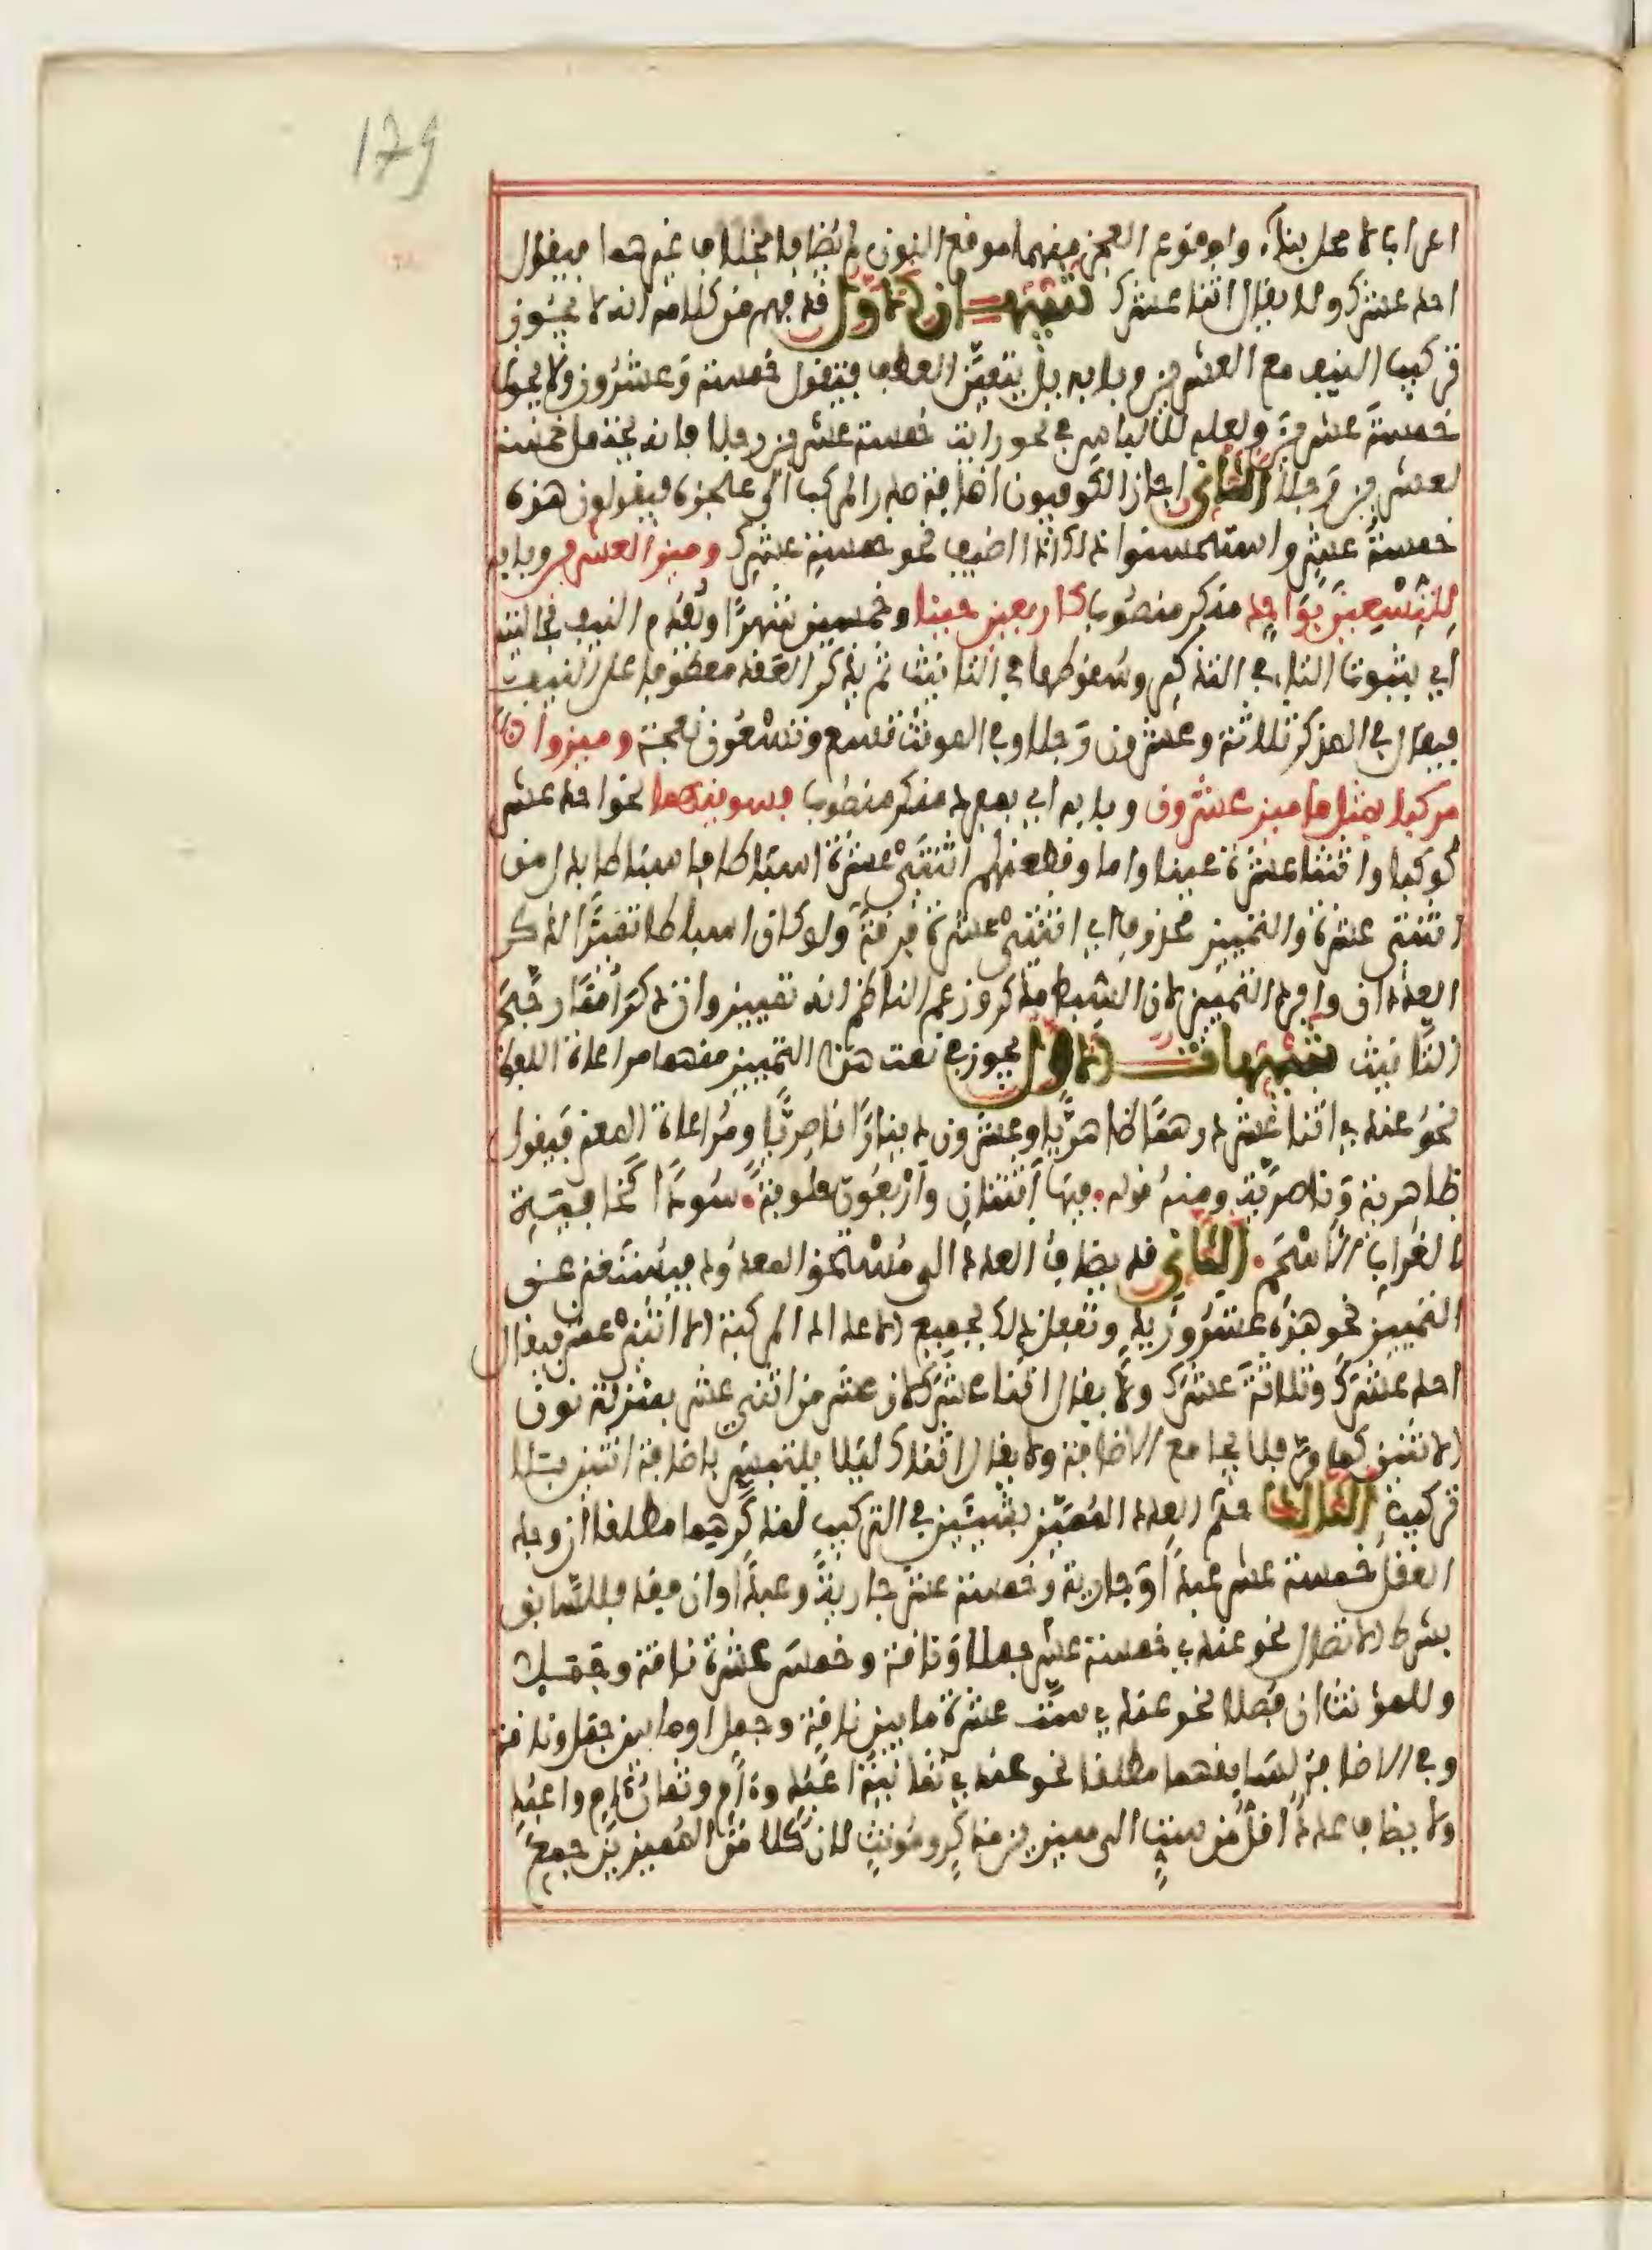 179
اعراب لا محل بناء ولوقوع العجز منهما موقع النون لم يضافا بخلاف غيرهما فيقال
احد عشرك ولا يقال اثنا عشرك تنبيهــان الاول قد فهم من كلامه انه لا يجوز
تركيب النيف مع العشرين وبابه بل يتعين العطف فتقول خمسة وعشرون ولا يجوز
خمسة عشرين ولعله للالباس في نحو رايت خمسة عشرين رجلا فانه يحتمل خمسة
لعشرين رجلا الثاني اجاز الكوفيون اضافة صدر المركب الى عجزه فيقولون هذه
خمسة عشر واستحسنوا ذلك اذا اضيف نحو خمسة عشرك وميز العشرين وبابه
للتسعين بواحد منكر منصوب كاربعين حينا وخمسين شهرا ويقدم النيف بحالتيه
اي بثبوت التاء في التذكير وسقوطها في التانيث ثم يذكر العقد معطوفا على النيف
فيقال في المذكر ثلاثة وعشرون رجلا وفي المونث تسع وتسعون نعجة وميزوا
مركبا بمثل ما ميز عشرون وبابه اي بمفرد منكر منصوب فسوينهما نحو احد عشر
كوكبا واثنتا عشرة عينا واما وقطعنهم اثنتي عشرة اسباطا فاسباطا بدل من
اثنتي عشرة والتمييز محذوف اي اثنتي عشرة فرقة ولو كان اسباطا تمييزا لذكر
العددان وافرد التمييز لان السبط مذكر وزعم الناظم انه تمييز وان ذكر امما رجح
التانيث تنبيهات الاول يجوز في نعت هذا التمييز منهما مراعاة اللفظ
نحو عندي اثنا عشر درهما ظاهريا وعشرون دينارا ناصريا ومراعاة المعنى فيقول
ظاهرية وناصرية ومنه قوله فيها اثنتان واربعون حلوبة سودا كخافية
الغراب الاسحم الثاني قد يضاف العدد الى مستحق المعدود فيستغنى عن
التمييز نحو هذه عشرو زيد وتفعل ذلك بجميع الاعداد المركبة الا اثني عشر فيقال
احد عشرك وثلاثة عشرك ولا يقال اثنا عشرك لان عشر من اثني عشر بمنزلة نون
الاثنين كما مر فلا تجامع الاضافة ولا يقال اثناك ليلا يلتبس باضافة اثنين بلا
تركيب الثالث حكم العدد المميز بشيئين في التركيب لمذكرهما مطلقا ان وجد
العقل خمسة عشر عبدا وجارية وخمسة عشر جارية وعبدا وان فقد فللسابق
بشرط الاتصال نحو عندي خمسة عشر جملا وناقة وخمس عشرة ناقة وجملا
وللمونث ان فصلا نحو عندي ست عشرة ما بين ناقة وجمل او ما بين جمل وناقة
وفي الاضافة لسابقهما مطلقا نحو عندي ثمانية اعبد وءام وثمان ءام واعبد
ولا يضاف عدد اقل من ستة الى مميزين مذكر ومونث لان كلا من المميزين جمع